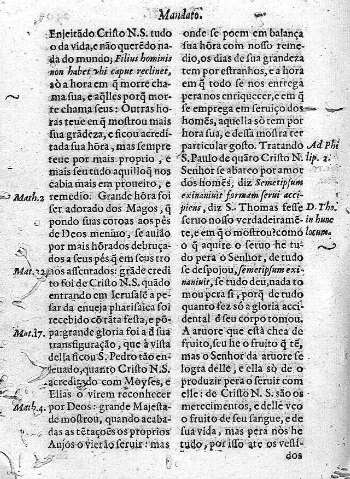 Mandato.
Enjeitādo Cristo N.S. tudo
o da vida, e não querēdo na-
da do mundo; Filius hominis
non habet vbi caput reclinet,
sò a hora em q̃ morre cha-
ma sua, e aq̃lles porq̃ mor-
re chama seus: Outras ho-
ras teue en q̃ mostrou mais
sua grādeza, e ficou acredi-
tada sua hóra, mas sempre
teue por mais proprio, e
mais seu tudo aquillo q̃ nos
cabia mais em proueito, e
Math.2 remedio. Grande hóra foi
ser adorado dos Magos, q̃
pondo suas coroas aos pès
de Deos menino, se auião
por mais hōrados debruça-
dos a seus pés q̃ em seus tro
nos assentados: grāde credi
to foi de Cristo N.S. quādo
entrando em Ierusalē a pe-
sar da enueja pharisaica foi
recebido cō tāta festa, e põ-
Mat.17. pa: grande gloria foi a d'sua
transfiguração, que à vista
della ficou S. Pedro tão en-
leuado, quanto Cristo N.S.
acreditado com Moyses, e
Elias o virem reconhecer
Math.4. por Deos: grande Majesta-
de mostrou, quando acaba-
das as tētaçoēs os proprios
Anjos o vierão seruir: mas
onde se poem em balança
sua hòra com nosso reme-
dio, os dias de sua grandeza
tem por estranhos, e a hora
em q̃ todo se nos entrega
pera nos enriquecer, e em q̃
se emprega em seruiço dos
homēs, aquella sò tem por
hora sua, e dessa mostra ter
particular gosto. Tratando Ad Phi
S. Paulo de quāto Cristo N. lip. 2.
Senhor se abateo por amor
dos homēs, diz Semetipsum
exinaniuit formam serui acci-
piens, diz S. Thomas fesse D. Tho.
seruo nosso verdadeiramē- in hunc
te, e em q̃ o mostrou? como locum.
o q̃ aquire o seruo he tu-
do pera o Senhor, de tudo
se despojou, semetipsum exi-
naniuit, se tudo deu, nada to
mou pera si, porq̃ de tudo
quanto fez só a gloria acci
dental d'seu corpo tomou.
A aruore que està chea de
fruito, seu he o fruito q̃ tē,
mas o Senhor da aruore se
logra delle, e ella sò de o
produzir pera o seruir com
elle: de Cristo N.S. são os
merecimentos, e delle veo
o fruito de seu sangue, e de
sua vida, mas pera nós he
tudo, por isso atè os vesti-
dos